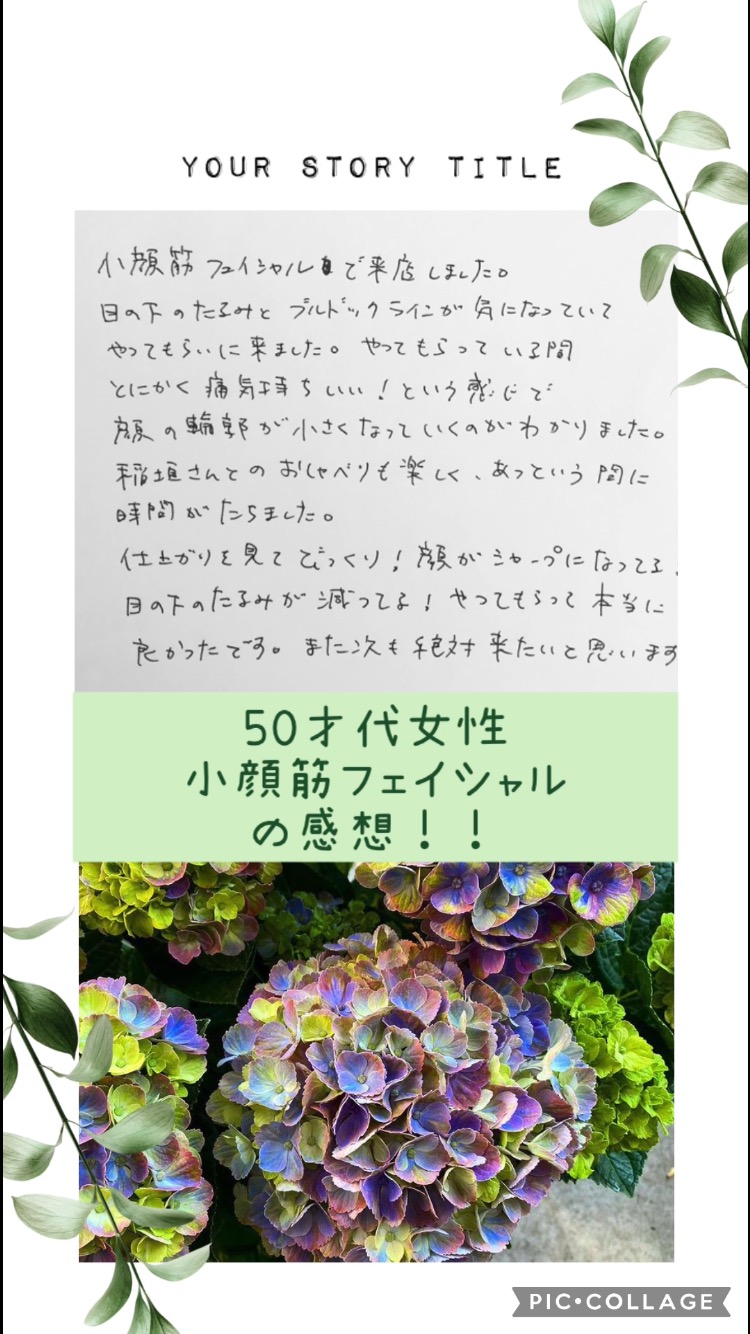 YOUR STORY TITLE
小顔筋フェイシャルで来店しました。
目の下のたるみと ブルドックラインが 気になっていて
やってもらいに来ました。やってもらっている間
とにかく痛気持ちいい！という感じで
顔の輪郭が小さくなっていくのがわかりました。
稲垣さんとのおしゃべりも楽しく、あっという間に
時間がたちました。
仕上がりを見てびっくり！顔がシャープになってる、
目の下のたるみが減ってる！やってもらって本当に
良かったです。また次も絶対来たいと思います
50才代女性
小顔筋フェイシャル
の感想！！
PIC•COLLAGE